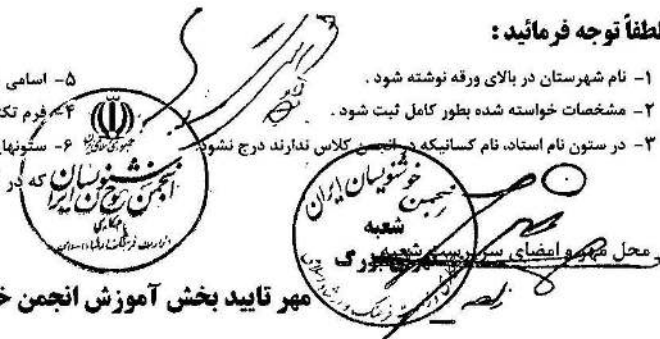 لطفاً توجه فرمائید :
۱- نام شهرستان در بالای ورقه نوشته شود .
۲- مشخصات خواسته شده بطور کامل ثبت شود .
۳- در ستون نام استاد، نام کسانیکه در انجمن کلاس ندارند درج نشود
۵- اسامی
۴- فرم
۶- ستونهای
که در
انجمن خوشنویسان ایران
انجمن خوشنویسان ایران
شعبه
محل مهر و امضای سرپرست شعبه
مهر تایید بخش آموزش انجمن